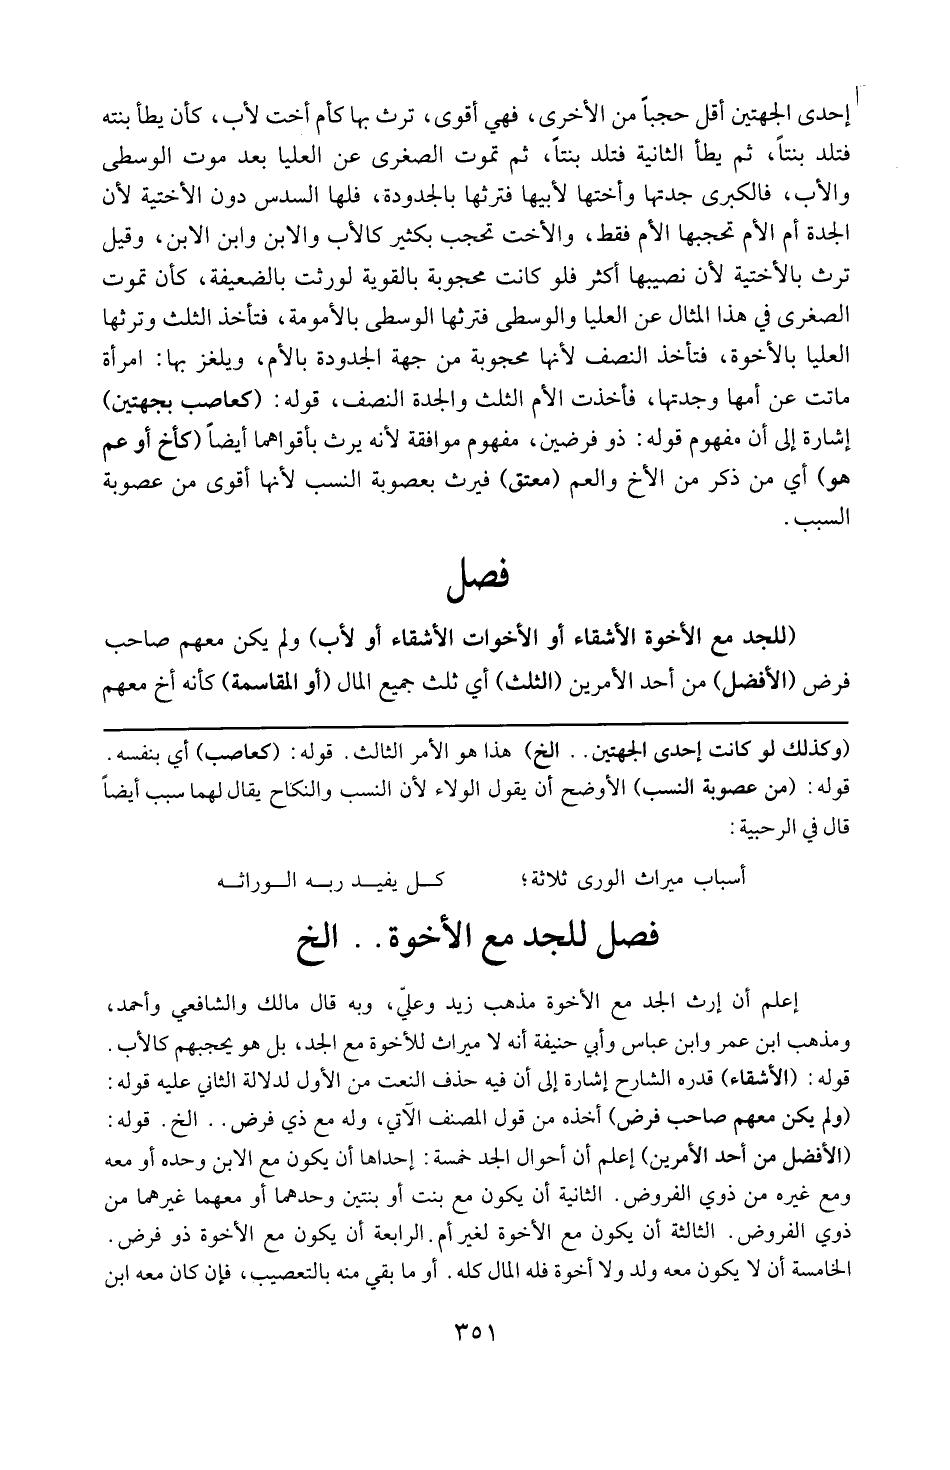 إحدى الجهتين أقل حجباً من الأخرى، فهي أقوى، ترث بها كأم أخت لأب، كأن يطأ بنته
فتلد بنتاً، ثم يطأ الثانية فتلد بنتاً، ثم تموت الصغرى عن العليا بعد موت الوسطى
والأب، فالكبرى جدتها وأختها لأبيها فترثها بالجدودة، فلها السدس دون الأختية لأن
الجدة أم الأم تحجبها الأم فقط، والأخت تحجب بكثير كالأب والابن وابن الابن، وقيل
ترث بالأختية لأن نصيبها أكثر فلو كانت محجوبة بالقوية لورثت بالضعيفة، كأن تموت
الصغرى في هذا المثال عن العليا والوسطى فترثها الوسطى بالأمومة، فتأخذ الثلث وترثها
العليا بالأخوة، فتأخذ النصف لأنها محجوبة من جهة الجدودة بالأم، ويلغز بها: امرأة
ماتت عن أمها وجدتها، فأخذت الأم الثلث والجدة النصف، قوله: (كعاصب بجهتين)
إشارة إلى أن مفهوم قوله: ذو فرضين، مفهوم موافقة لأنه يرث بأقواهما أيضاً (كأخ أو عم
هو) أي من ذكر من الأخ والعم (معتق) فيرث بعصوبة النسب لأنها أقوى من عصوبة
السبب.
فصل
(للجد مع الأخوة الأشقاء أو الأخوات الأشقاء أو لأب) ولم يكن معهم صاحب
فرض (الأفضل) من أحد الأمرين (الثلث) أي ثلث جميع المال (أو المقاسمة) كأنه أخ معهم
(وكذلك لو كانت إحدى الجهتين.. الخ) هذا هو الأمر الثالث. قوله: (كعاصب) أي بنفسه.
قوله: (من عصوبة النسب) الأوضح أن يقول الولاء لأن النسب والنكاح يقال لهما سبب أيضاً
قال في الرحبية:
أسباب ميراث الورى ثلاثة؛ كــل يفيــد ربــه الــوراثــه
فصل للجد مع الأخوة.. الخ
إعلم أن إرث الجد مع الأخوة مذهب زيد وعليّ، وبه قال مالك والشافعي وأحمد،
ومذهب ابن عمر وابن عباس وأبي حنيفة أنه لا ميراث للأخوة مع الجد، بل هو يحجبهم كالأب.
قوله: (الأشقاء) قدره الشارح إشارة إلى أن فيه حذف النعت من الأول لدلالة الثاني عليه قوله:
(ولم يكن معهم صاحب فرض) أخذه من قول المصنف الآتي، وله مع ذي فرض.. الخ. قوله:
(الأفضل من أحد الأمرين) إعلم أن أحوال الجد خمسة: إحداها أن يكون مع الابن وحده أو معه
ومع غيره من ذوي الفروض. الثانية أن يكون مع بنت أو بنتين وحدهما أو معهما غيرهما من
ذوي الفروض. الثالثة أن يكون مع الأخوة لغير أم. الرابعة أن يكون مع الأخوة ذو فرض.
الخامسة أن لا يكون معه ولد ولا أخوة فله المال كله. أو ما بقي منه بالتعصيب، فإن كان معه ابن
٣٥١